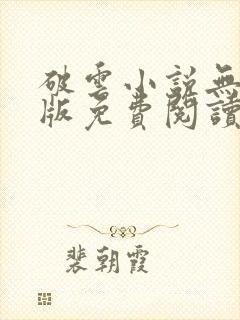 破雲小說無
版免費閱讀
裴朝霞